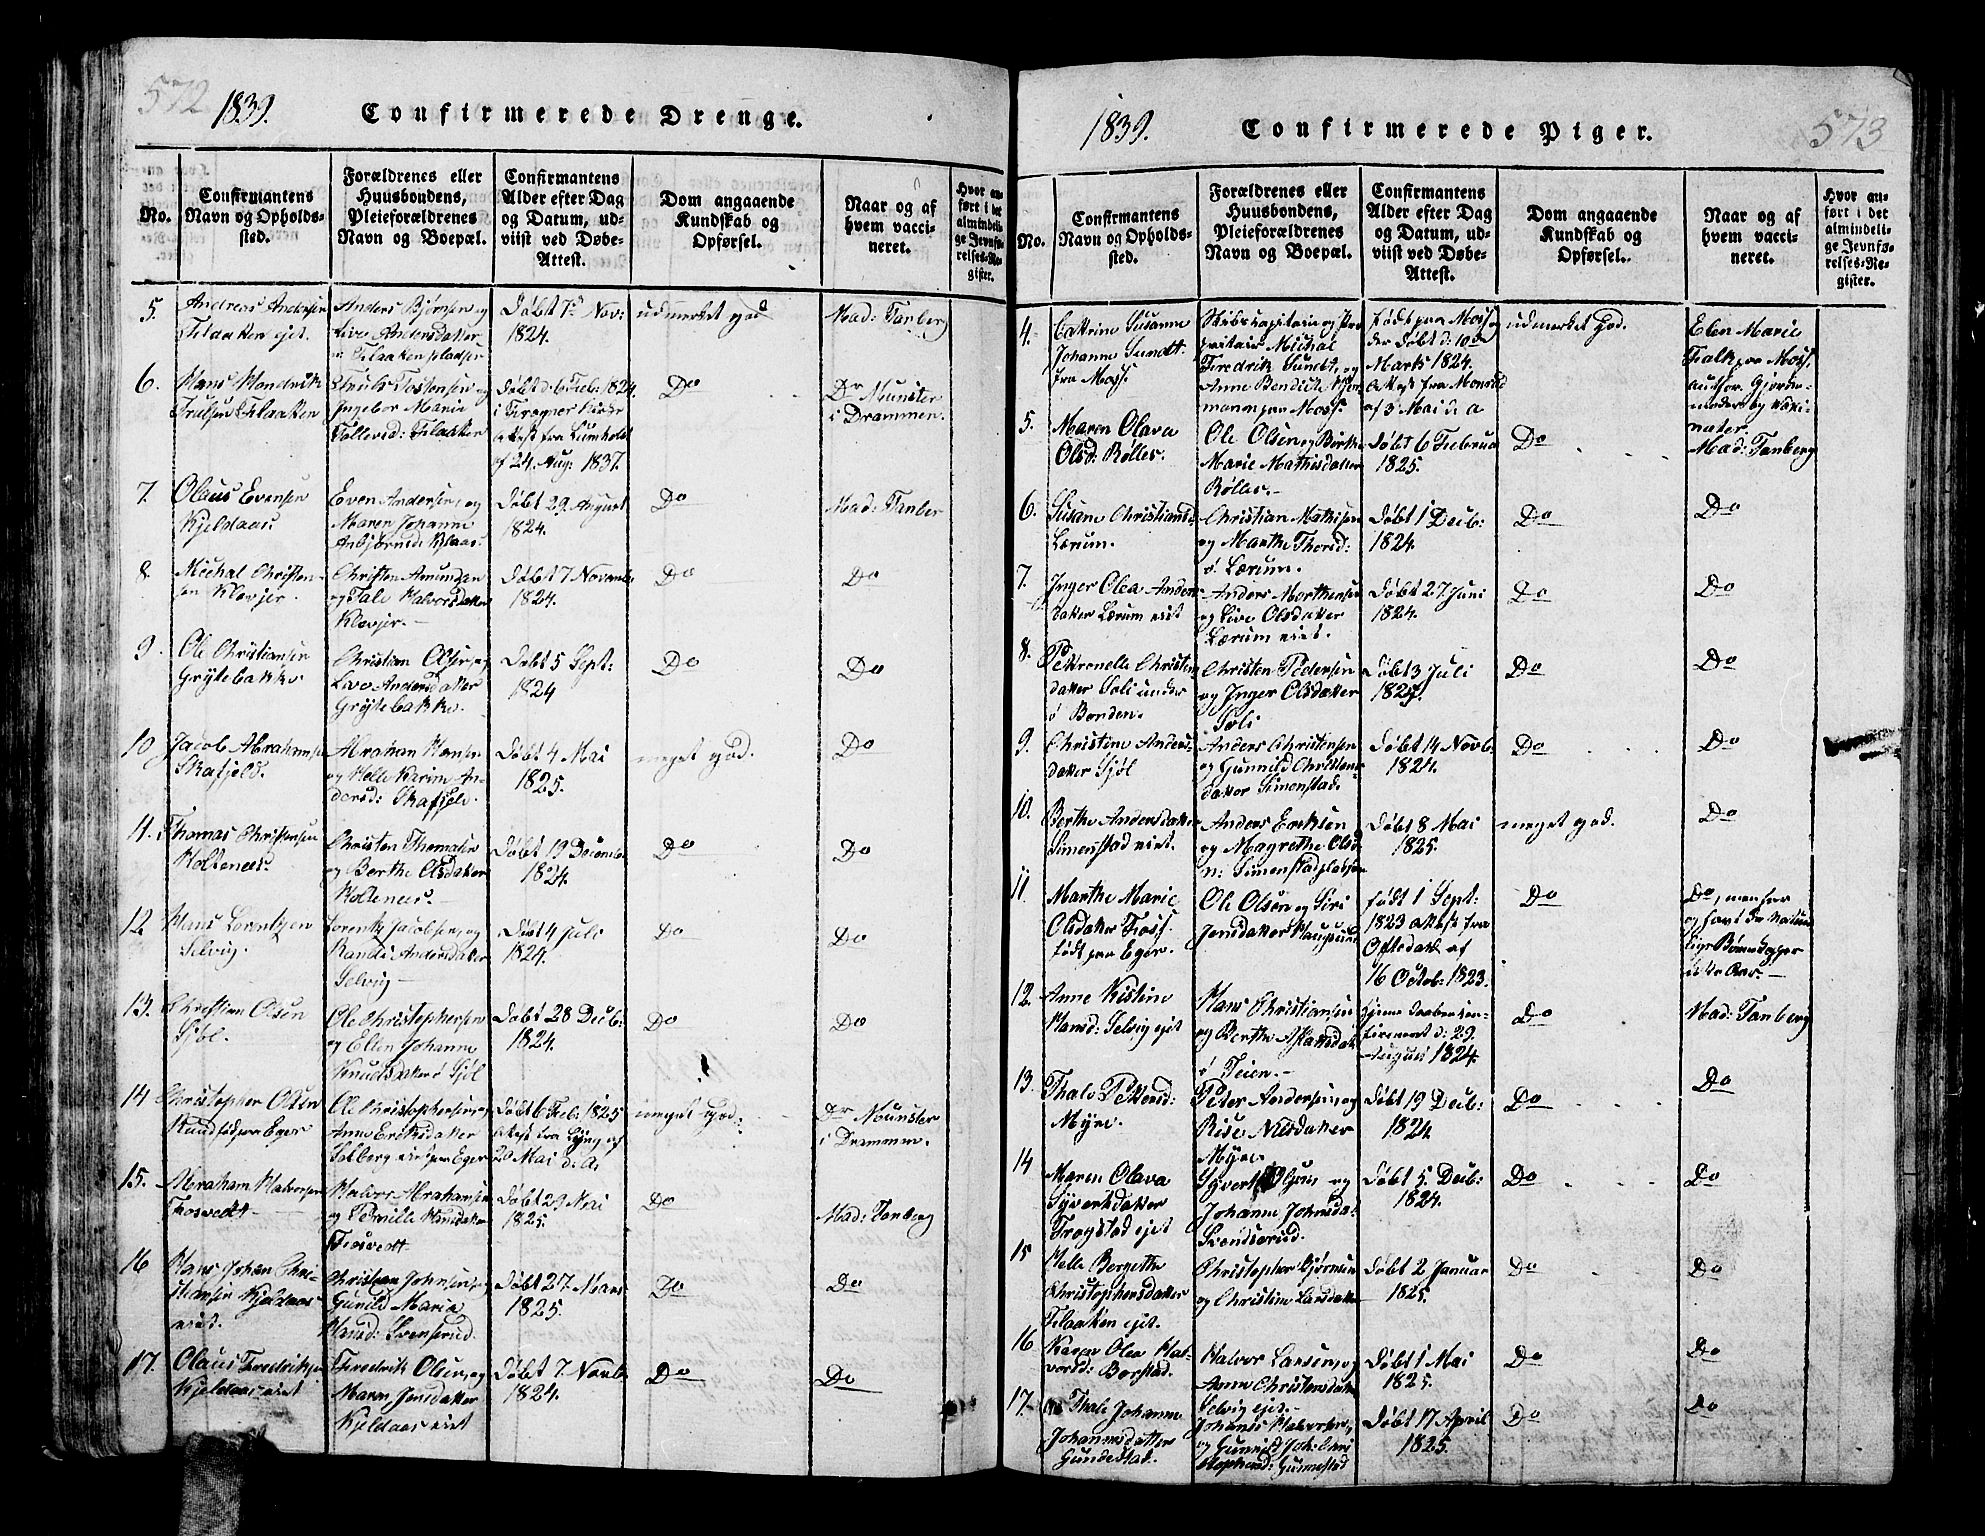 572
1839.
Confirmerede Drenge.
No.
Confirmantens
Navn og Opholds-
sted.
Forældrenes eller
Huusbondens,
Pleieforældrenes
Navn og Boepæl.
Confirmantens
Alder efter Dag
og Datum, ud-
viist ved Døbe-
Attest.
Dom angaaende
Kundskab og
Opførsel.
Naar og af
hvem vacci-
neret.
Hvor an-
ført i det
almindeli-
ge Jevnfø-
relses-Re-
gister.
5.
Andreas Andersen
Filaaken ejet.
Anders Bjørnsen og
Live Andersdatter
Filaaken pladsen
Døbt 7d Nov:
1824.
udmerket god
Mad: Tanberg
6.
Hans Hendrik
Trulsen Filaaken
Truls Tostensen og
Ingebor Maria
Tollevsd: Filaaken
Døbt d: 6 Feb: 1824
i Frogner Kirke
attest fra Lumholt
af 24. Aug: 1837.
Do
Dr Munster
i Drammen.
7.
Olaus Evensen
Kjeldaas
Even Andersen, og
Maren Johanne
Asbjørnsd: Klaas:
Døbt 29 August
1824.
Do
Mad: Tanber
8
Michal Christen-
sen Klevjer.
Christen Amundsen
og Tale Halvorsdatter
Klevjer.-
Døbt 7 Novemb:
1824.
Do
Do
9
Ole Christiansen
Grytebakke.
Christian Olsen, og
Live Andersdatter
Grytebakke.
Døbt 5 Sept:
1824
Do
Do
10
Jacob Abrahamsen
Skafjeld.
Abraham Hansen
og Helle Karine An-
dersd: Skafjeld.
Døbt 4 Mai
1825.
meget god.
Do
11.
Thomas Christensen
Holtenæs.
Christen Thomasen
og Berthe Olsdatter
Holtenæs.-
Døbt 19 Decemb:
1824.
Do
Do
12
Hans Lorentzen
Selvig.
Lorentz Jacobsen, og
Randi Andersdatter
Selvig-
Døbt 4 Juli
1824.
Do
Do
13.
Christian Olsen
Sjøl.
Ole Christophersen
og Ellen Johanne
Knudsdatter ø Sjøl
Døbt 28 Decb:
1824.
Do
Do
14
Christopher Olsen
Rund født paa Eger
Ole Christophersen, og
Anne Eriksdatter
Solberg eiet paa Eger
Døbt 6 Feb: 1825
attest fra Lyng af
20 Mai d: A.
meget god.
Dr Munster
i Drammen.
15.
Abraham Halvorsen
Fosvedt-
Halvor Abrahamsen
og Pernille Hansdatter
Fosvedt.
Døbt 29 Mai
1825.
Do
Mad: Tanberg
16
Hans Johan Chri-
stiansen Kjeldaas
eiet.
Christian Johnsen, og
Gunild Maria
Hansd: Svenserud.
Døbt 27 Mars
1825.
Do
Do
17.
Olaus Fredriksen
Kjeldaas eiet
Fredrik Olsen, og
Maren Jensdatter
Kjeldaas eiet
Døbt 7. Novb:
1824.
Do
Do
1839.
Confirmerede Piger.
573
No.
Confirmantens
Navn og Opholds-
sted.
Forældrenes eller
Huusbondens,
Pleieforældrenes
Navn og Boepæl.
Confirmantens
Alder efter Dag
og Datum, ud-
viist ved Døbe-
Attest.
Dom angaaende
Kundskab og
Opførsel.
Naar og af
hvem vacci-
neret.
Hvor an-
ført i det
almindeli-
ge Jevnfø-
relses-Re-
gister.
4.
Catrine Susanne
Johanne Sundt
fra Moss.
Skibscapitain og Pro-
pritair Michal
Fredrik Sundt, og
Anne Bendicte
paa Moss.
født paa Moss og
der døbt d: 10de
Marts 1824.
attest fra Monrad
af 3 Mai d: a
udmerket God.
Elen Marie
Falk paa Moss,
Mad: Tanberg
5.
Maren Olava
Olsd: Røller.
Ole Olsen, og Berthe
Marie Mathisdatter
Røller.-
Døbt 6 Februar
1825.
Do
6.
Susane Christiansd:
Lærum.
Christian Mathisen
og Marthe Thorsd:
ø. Lærum.
Døbt 1 Decb:
1824.
Do
Do
7.
Inger Olea Anders-
datter Lærum eiet
Anders Morthensen
og Live Olsdatter
Lærum eiet.
Døbt 27. Juni
1824.
Do
Do
8.
Petronelle Christens-
datter Soli under
ø Bonden.
Christen Pedersen
og Inger Olsdatter
Soli
Døbt 3 Juli
1824.
Do
Do
9.
Christine Anders-
datter Sjøl
Anders Christensen
og Gunnild Christens-
datter Simenstad.
Døbt 14 Novb.
1824.
Do
Do
10.
Berthe Andersdatter
Simenstad eiet.
Anders Eriksen
og Magrethe Olsd
n: Simenstadpladsen
Døbt 8 Mai
1825.
meget god.
Do
11.
Marthe Marie
Olsdatter Foss.
født paa Eger.
Ole Olsen og Siri
Jensdatter Haugsund
født 1 Sept:
1823 attest fra
Oftedahl af
16 Octob: 1823.
Do
Do,
12.
Anne Kistine
Hansd: Selvig ejet
Hans Christiansen
og Berthe Aslaksdatter
ø Teien.-
Hjemedaaben con-
firmeret d: 29
August 1824.
Do
Mad: Tanberg
13.
Thale Pettersd:
Myre.
Peter Andersen, og
Rise Nilsdatter
Myre.
Døbt 19 Decb:
1824.
Do
Do
14
Maren Olava
Syvertsdatter
Trogstad ejet
Syvert Olsen og
Johanne Johnsda:
Svendserud.
Døbt 5. Decb:
1824.
Do
Do
15
Helle Bergethe
Christophersdatter
Filaaken ejet.
Christopher Bjørnsen
og Christine Larsdatter
Døbt 2 Januar
1825.
Do
Do
16
Karen Olea Hal-
vorsd: Berstad.
Halvor Larsen, og
Anne Christensdatter
Selvig ejet.-
Døbt 1 Mai
1825.
Do
Do
17.
Thale Johanne
Johannesdatter
Gundestad.
Johanes Halvorsen,
og Gunnild Joh: Chri
stophersd: Gunnestad
Døbt 17 April
1825.
Do
Do